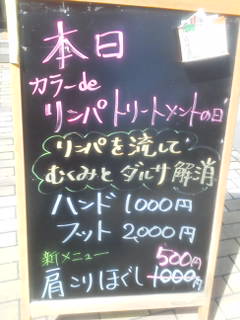 本日
カラーde
リンパトリートメントの日
リンパを流して
むくみとダルサ解消
ハンド 1000円
フット 2,000円
新メニュー 500円
肩こりほぐし 1000円